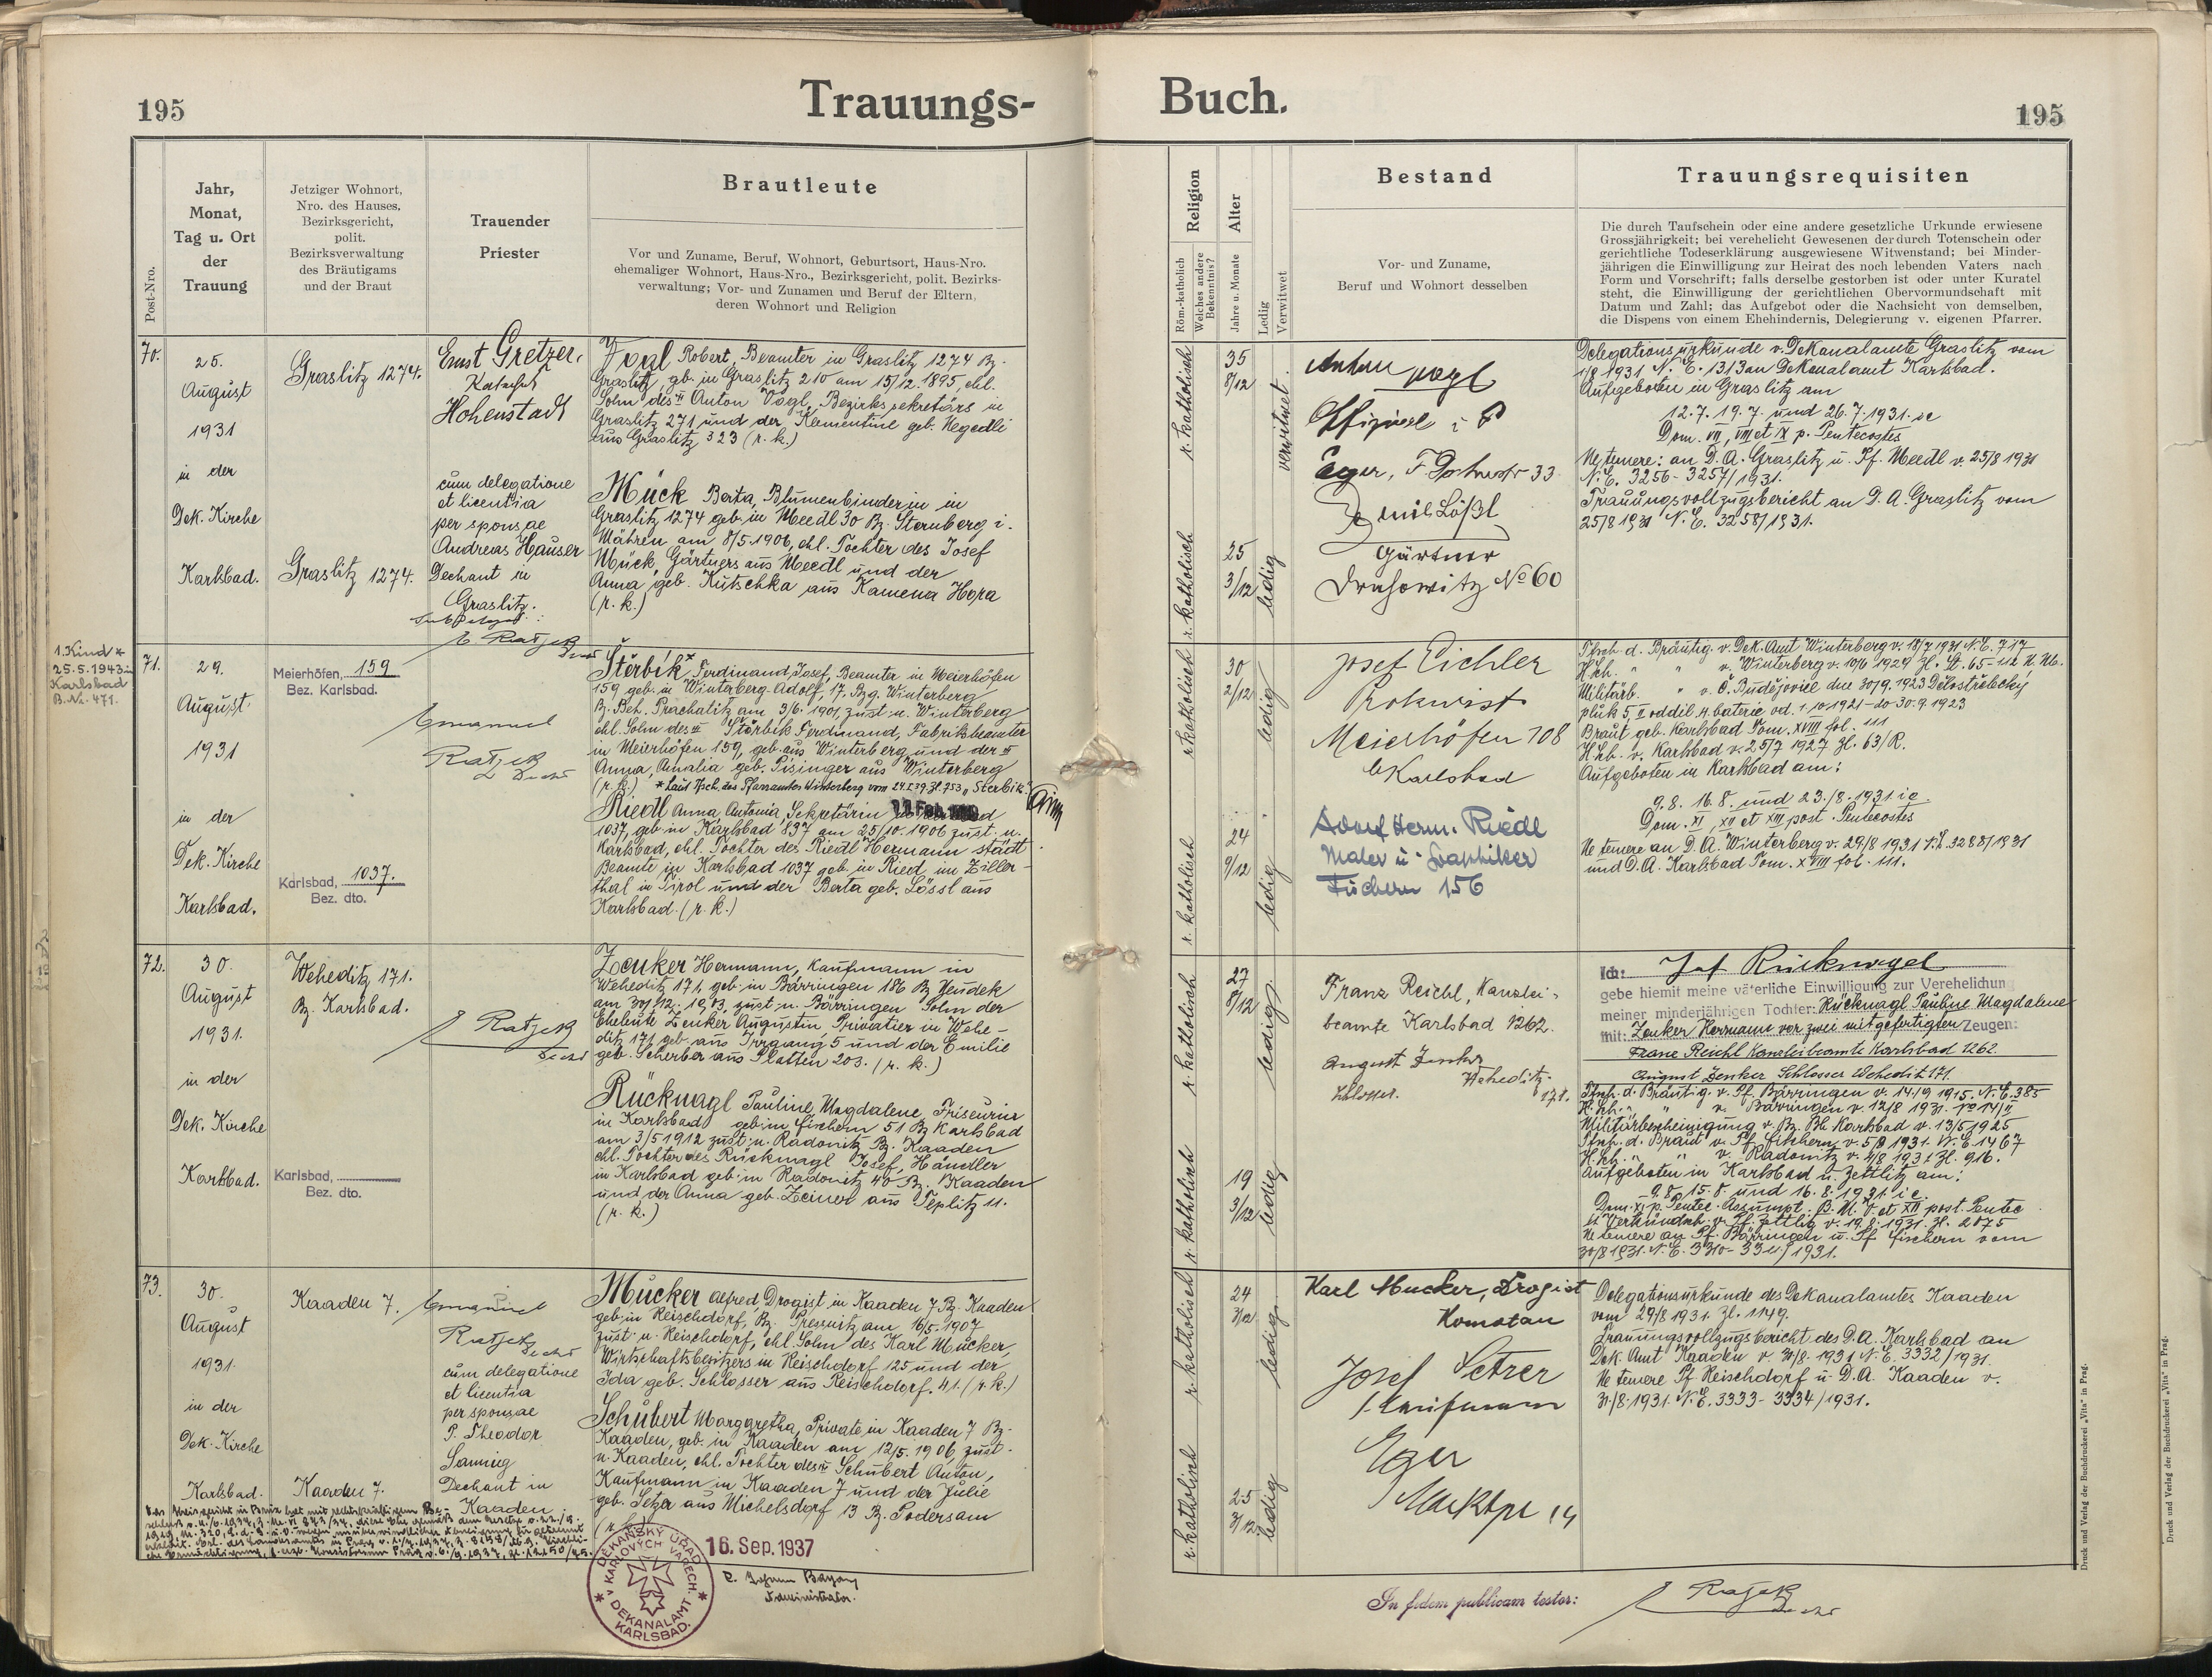 195
Trauungs-
Buch.
195
Post-Nro.
Jahr,
Monat,
Tag u. Ort
der
Trauung
Jetziger Wohnort,
Nro. des Hauses,
Bezirksgericht,
polit.
Bezirksverwaltung
des Bräutigams
und der Braut
Trauender
Priester
Brautleute
Vor und Zuname, Beruf, Wohnort, Geburtsort, Haus-Nro.
ehemaliger Wohnort, Haus-Nro., Bezirksgericht, polit. Bezirks-
verwaltung; Vor- und Zunamen und Beruf der Eltern,
deren Wohnort und Religion
Religion
Röm.-katholisch
Welches andere
Bekenntnis?
Alter
Jahre u. Monate
Ledig
Verwitwet
Bestand
Vor- und Zuname,
Beruf und Wohnort desselben
Trauungsrequisiten
Die durch Taufschein oder eine andere gesetzliche Urkunde erwiesene
Grossjährigkeit; bei verehelicht Gewesenen der durch Totenschein oder
gerichtliche Todeserklärung ausgewiesene Witwenstand; bei Minder-
jährigen die Einwilligung zur Heirat des noch lebenden Vaters nach
Form und Vorschrift; falls derselbe gestorben ist oder unter Kuratel
steht, die Einwilligung der gerichtlichen Obervormundschaft mit
Datum und Zahl; das Aufgebot oder die Nachsicht von demselben,
die Dispens von einem Ehehindernis, Delegierung v. eigenen Pfarrer.
70.
25.
August
1931
in der
Dek. Kirche
Karlsbad.
Graslitz 1274.
Graslitz 1274.
Ernst Gretzer,
Katechet
Hohenstadt
cum delegatione
et licentia
per sponsae
Andreas Hauser
Dechant in
Graslitz.
E. Ratjek
Vogl Robert, Beamter in Graslitz 1274 Bz.
Graslitz, gb. in Graslitz 210 am 15/12.1895, ehl.
Sohn des Anton Vogl, Bezirkssekretärs in
Graslitz 271 und der Klementine geb. Hegedli
aus Graslitz 323 (r. k.)
Mück Berta, Blumenbinderin in
Graslitz 1274 geb. in Meedl 30 Bz. Sternberg i.
Mähren am 8/5.1906, ehl. Tochter des Josef
Mück, Gärtners aus Meedl und der
Anna geb. Kutschka aus Kamena Hora
(r. k.)
r. katholisch
35
8/12
verwitwet
r. katholisch
25
3/12
ledig
Anton Vogl
Eger, 33
Emil Lößl
Gärtner
Drahowitz No 60
Delegationsurkunde v. Dekanalamte Graslitz vom
1/8 1931 N. E. 1313 an Dekanalamt Karlsbad.
Aufgeboten in Graslitz am
12.7. 19.7. und 26.7.1931. ie
Dom. VII, VIII et IX p. Pentecostes
Ne temere: an D. A. Graslitz u. Pf. Meedl v. 25/8 1931
N. E. 3256-3257/1931.
Trauungsvollzugsbericht an D. A. Graslitz vom
25/8 1931 N. E. 3258/1931.
1. Kind *
25.5.1943 in
Karlsbad
B. Nr. 471.
71.
29.
August
1931
in der
Dek. Kirche
Karlsbad.
Meierhöfen, 159
Bez. Karlsbad.
Karlsbad, 1037.
Bez. dto.
Emanuel
Ratjek
Štěrbik* Ferdinand, Josef, Beamter in Meierhöfen
159 geb. in Winterberg-Adolf, 17, Bzg. Winterberg
Bz. Beh. Prachatitz am 3/6. 1901, zust. n. Winterberg
ehl. Sohn des Štěrbik Ferdinand, Fabriksbeamter
in Meierhöfen 159, geb. aus Winterberg und der
Anna, Amalia geb. Pisinger aus Winterberg
(r. k.) * Laut Tsch. des Pfarramtes Winterberg vom 24.I.39. Zl. 753 „Sterbik"
Riedl Anna, Antonia, Sekretärin
1037, geb. in Karlsbad 837 am 25/10. 1906 zust. n.
Karlsbad, ehl. Tochter des Riedl Hermann städt.
Beamte in Karlsbad 1037 geb. in Ried im Ziller-
thal in Tirol und der Berta geb. Lössl aus
Karlsbad. (r. k.)
r. katholisch
30
2/12
ledig
r. katholisch
24
9/12
ledig
Josef Eichler
Prokurist
Meierhöfen 108
b/Karlsbad
Adolf Herm. Riedl
Maler u. Graphiker
Fischern 156
Tfsch. d. Bräutig. v. Dek. Amt Winterberg v. 18/7 1931 N. E. 717
H. sch. " " v. Winterberg v. 10/6 1924
Militärb. " v. Č. Budějovice dne 30/9. 1923 Dělostřelecký
pluk 5, II oddíl 4. baterie od. 1.10.1921 - do 30.9.1923
Braut geb. Karlsbad Tom. XVIII fol. 111
H. sch. v. Karlsbad v. 25/7 1927 Zl. 63/R.
Aufgeboten in Karlsbad am:
9.8. 16.8. und 23./8.1931 ie
Dom. XI, XII et XIII post. Pentecostes
Ne temere an D. A. Winterberg v. 29/8 1931 N. E. 3288/1931
und D. A. Karlsbad Tom. XVIII fol. 111.
72.
30.
August
1931.
in der
Dek. Kirche
Karlsbad.
Weheditz 171.
Bz. Karlsbad.
Karlsbad,
Bez. dto.
E. Ratjek
Zenker Hermann, Kaufmann in
Weheditz 171, geb. in Bärringen 186 Bz. Neudek
am 30/12. 1903, zust. n. Bärringen Sohn der
Eheleute Zenker Augustin, Privatier in Wehe-
ditz 171 geb. aus Irrgang 5 und der Emilie
geb. Scherber aus Platten 203. (r. k.)
Rücknagl Pauline, Magdalene, Friseurin
in Karlsbad geb. in Fischern 51 Bz. Karlsbad
am 3/5 1912 zust. n. Radonitz Bz. Kaaden
ehl. Tochter des Rücknagl Josef, Händler
in Karlsbad geb. in Radonitz 40 Bz. Kaaden
und der Anna geb. Zeiner aus Teplitz 11.
(r. k.)
r. katholisch
27
8/12
ledig
r. katholisch
19
3/12
ledig
Franz Reichl, Kanzlei-
beamte Karlsbad 1262.
August Zenker
Weheditz
Schlosser. 171.
Ich: Josef Rücknagel
gebe hiemit meine väterliche Einwilligung zur Verehelichung
meiner minderjährigen Tochter: Rücknagl Pauline Magdalene
mit: Zenker Hermann vor zwei mitgefertigten Zeugen:
Franz Reichl Kanzleibeamte Karlsbad 1262.
August Zenker Schlosser Wehedit 171.
Tfsch. d. Bräutig. v. Pf. Bärringen v. 14/9 1915. N. E. 385
H. sch. " " v. Bärringen v. 12/8 1931. No 14/II
Militärbescheinigung v. Bz. Bh. Karlsbad v. 13/5 1925
Tfsch. d. Braut v. Pf. Fischern v. 5/8 1931. N. E. 1467
H. sch. " " v. Radonitz v. 4/8 1931 Zl. 916.
Aufgeboten in Karlsbad u. Zettlitz am:
9.8. 15.8. und 16.8.1931. ie.
Dom. XI p. Pentec. Assumpt. B. M. V. et XII post. Pentec
lt. Verkündsch. v. Pf. Zettlitz v. 19.8.1931. Zl. 2075
Ne temere an Pf. Bärringen u. Pf. Fischern vom
30/8 1931. N. E. 3310-3311/1931.
73.
30.
August
1931.
in der
Dek. Kirche
Karlsbad.
Kaaden 7.
Kaaden 7.
Emanuel
Ratjek
cum delegatione
et licentia
per sponsae
P. Theodor
Dechant in
Kaaden.
Mücker Alfred Drogist in Kaaden 7 Bz. Kaaden
geb. in Reischdorf, Bz. Pressnitz am 16/5. 1907
zust. n. Reischdorf, ehl. Sohn des Karl Mücker,
Wirtschaftsbesitzers in Reischdorf 125 und der
Ida geb. Schlosser aus Reischdorf. 41. (r. k.)
Schubert Margaretha, Private in Kaaden 7 Bz.
Kaaden, geb. in Kaaden am 12/5. 1906, zust.
n. Kaaden, ehl. Tochter des Schubert Anton,
Kaufmann in Kaaden 7 und der Julie
geb. Setzer aus Michelsdorf 13 Bz. Podersam
(r. k.)
r. katholisch
24
3/12
ledig
r. katholisch
25
3/12
ledig
Karl Mucker, Drogist
Komotau
Josef Setzer
Kaufmann
Eger
Marktpl 14
Delegationsurkunde des Dekanalamtes Kaaden
vom 29/8 1931. Zl. 1149.
Trauungsvollzugsbericht des D. A. Karlsbad an
Dek. Amt Kaaden v. 31/8. 1931 N. E. 3332/1931.
Ne temere Pf. Reischdorf u. D. A. Kaaden v.
31/8.1931. N. E. 3333-3334/1931.
DĚKANSKÝ ÚŘAD
V KARLOVÝCH VARECH.
DEKANALAMT
KARLSBAD.
16. Sep. 1937
Administrator.
In fidem publicam testor:
E. Ratjek
Druck und Verlag der Buchdruckerei „Vita" in Prag.
Druck und Verlag der Buchdruckerei „Vita" in Prag.